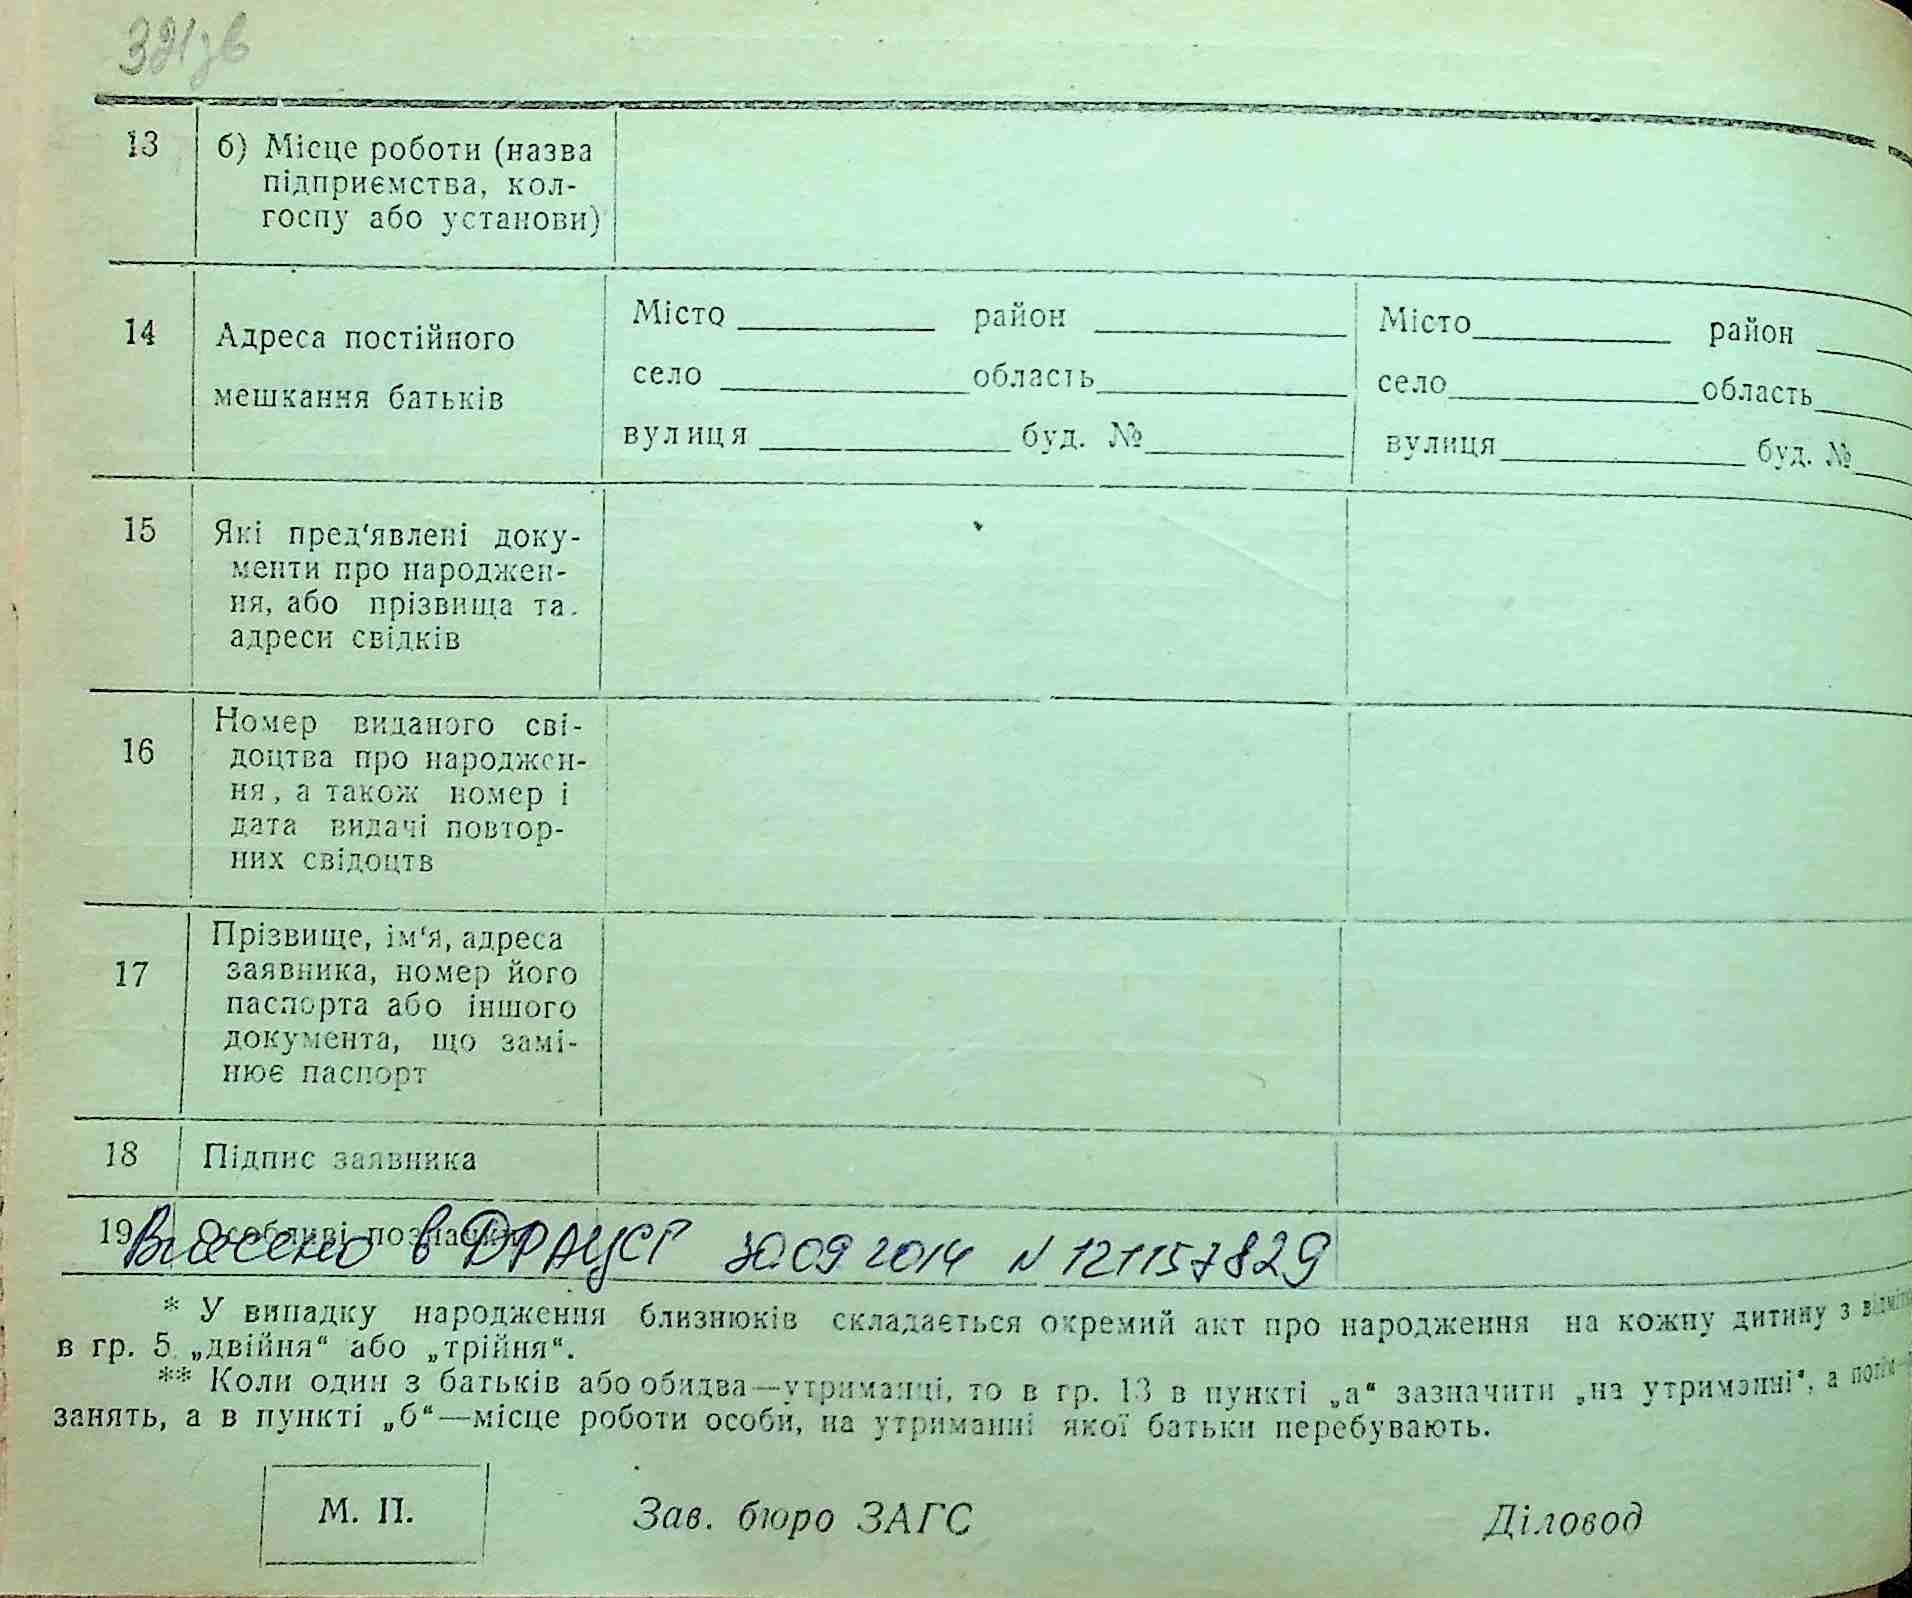 321 зв
13 б) Місце роботи (назва
підприємства, кол-
госпу або установи)
14 Адреса постійного
мешкання батьків
Місто район
село область
вулиця буд. №
Місто район
село область
вулиця буд. №
15 Які пред‘явлені доку-
менти про народжен-
ня, або прізвища та
адреси свідків
16 Номер виданого сві-
доцтва про народжен-
ня, а також номер і
дата видачі повтор-
них свідоцтв
17 Прізвище, ім‘я, адреса
заявника, номер його
паспорта або іншого
документа, що замі-
нює паспорт
18 Підпис заявника
19 Особливі позначки
Внесено в ДРАЦСГ 30.09 2014 N 121157829
* У випадку народження близнюків складається окремий акт про народження на кожну дитину з
в гр. 5 „двійня“ або „трійня“.
** Коли один з батьків або обидва—утриманці, то в гр. 13 в пункті „а“ зазначити „на утриманні“, а
занять, а в пункті „б“—місце роботи особи, на утриманні якої батьки перебувають.
М. П. Зав. бюро ЗАГС Діловод